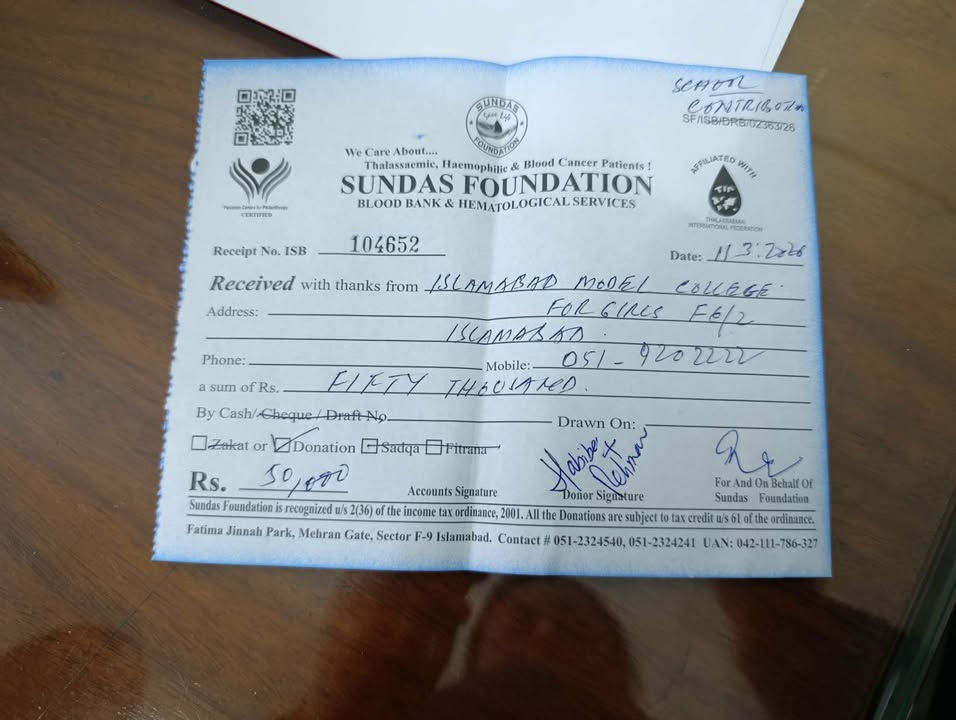 SCHOOL
CONTRIBUTION
SF/ISB/DRB/02363/26
SUNDAS
Save Life
FOUNDATION
We Care About....
Thalassaemic, Haemophilic & Blood Cancer Patients !
SUNDAS FOUNDATION
BLOOD BANK & HEMATOLOGICAL SERVICES
Pakistan Centre for Philanthropy
CERTIFIED
AFFILIATED WITH
TIF
THALASSAEMIA
INTERNATIONAL FEDERATION
Receipt No. ISB 104652
Date: 11.3.2026
Received with thanks from ISLAMABAD MODEL COLLEGE
Address: FOR GIRLS F6/2
ISLAMABAD.
Phone: Mobile: 051-9202222
a sum of Rs. FIFTY THOUSAND.
By Cash/Cheque / Draft No. Drawn On:
Zakat or Donation Sadqa Fitrana
Rs. 50,000 Accounts Signature Donor Signature For And On Behalf Of
Sundas Foundation
Sundas Foundation is recognized u/s 2(36) of the income tax ordinance, 2001. All the Donations are subject to tax credit u/s 61 of the ordinance.
Fatima Jinnah Park, Mehran Gate, Sector F-9 Islamabad. Contact # 051-2324540, 051-2324241 UAN: 042-111-786-327